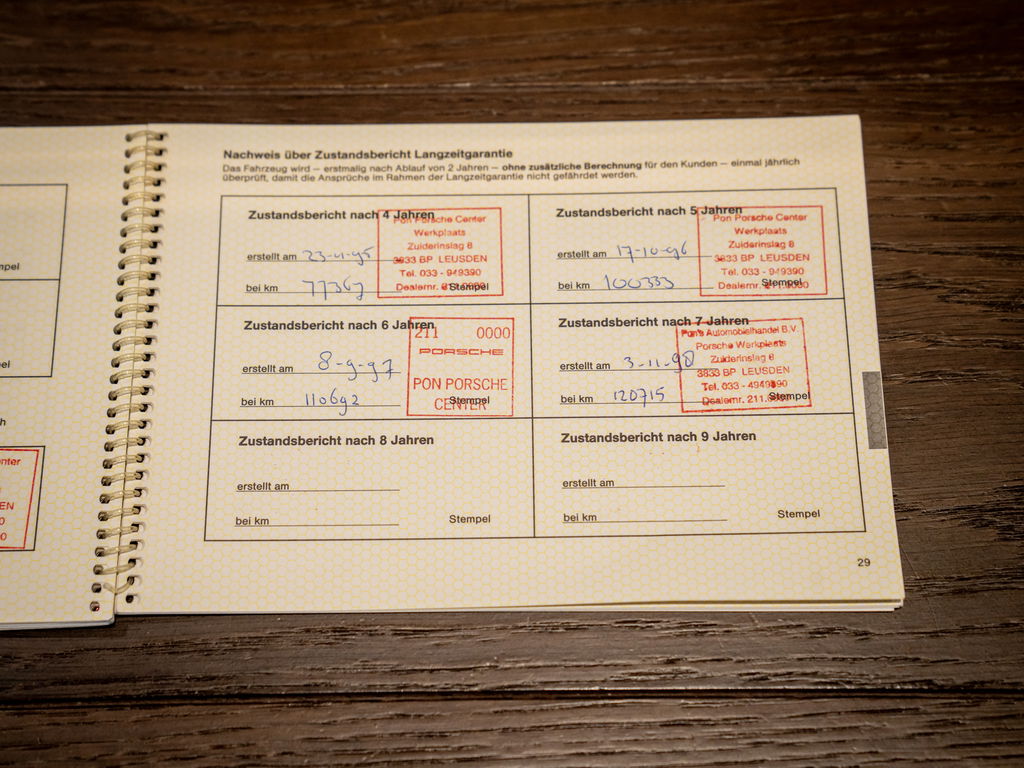 Nachweis über Zustandsbericht Langzeitgarantie
Das Fahrzeug wird – erstmalig nach Ablauf von 2 Jahren – ohne zusätzliche Berechnung für den Kunden – einmal jährlich
überprüft, damit die Ansprüche im Rahmen der Langzeitgarantie nicht gefährdet werden.
Zustandsbericht nach 4 Jahren
Pon Porsche Center
Werkplaats
Zuiderinslag 8
3833 BP LEUSDEN
Tel. 033 - 949390
Dealernr.
erstellt am 23-11-95
bei km 77367
Stempel
Zustandsbericht nach 5 Jahren
Pon Porsche Center
Werkplaats
Zuiderinslag 8
3833 BP LEUSDEN
Tel. 033 - 949390
Dealernr. 211.0000
erstellt am 17-10-96
bei km 100333
Stempel
Zustandsbericht nach 6 Jahren
211 0000
PORSCHE
PON PORSCHE
CENTER
erstellt am 8-9-97
bei km 110692
Stempel
Zustandsbericht nach 7 Jahren
Pon's Automobielhandel B.V.
Porsche Werkplaats
Zuiderinslag 8
3833 BP LEUSDEN
Tel. 033 - 4949390
Dealernr.
erstellt am 3-11-98
bei km 120715
Stempel
Zustandsbericht nach 8 Jahren
erstellt am
bei km
Stempel
Zustandsbericht nach 9 Jahren
erstellt am
bei km
Stempel
29